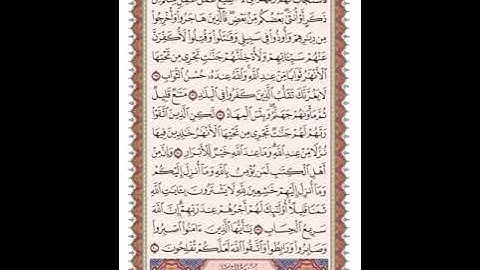 ذَكَرٍ أَوْ أُنثَىٰ ۖ بَعْضُكُم مِّنۢ بَعْضٍ ۖ فَٱلَّذِينَ هَاجَرُوا۟ وَأُخْرِجُوا۟
مِن دِيَٰرِهِمْ وَأُوذُوا۟ فِى سَبِيلِى وَقَٰتَلُوا۟ وَقُتِلُوا۟ لَأُكَفِّرَنَّ
عَنْهُمْ سَيِّـَٔاتِهِمْ وَلَأُدْخِلَنَّهُمْ جَنَّٰتٍ تَجْرِى مِن تَحْتِهَا
ٱلْأَنْهَٰرُ ثَوَابًا مِّنْ عِندِ ٱللَّهِ ۗ وَٱللَّهُ عِندَهُۥ حُسْنُ ٱلثَّوَابِ
لَا يَغُرَّنَّكَ تَقَلُّبُ ٱلَّذِينَ كَفَرُوا۟ فِى ٱلْبِلَٰدِ مَتَٰعٌ قَلِيلٌ
ثُمَّ مَأْوَىٰهُمْ جَهَنَّمُ ۚ وَبِئْسَ ٱلْمِهَادُ لَٰكِنِ ٱلَّذِينَ ٱتَّقَوْا۟
رَبَّهُمْ لَهُمْ جَنَّٰتٌ تَجْرِى مِن تَحْتِهَا ٱلْأَنْهَٰرُ خَٰلِدِينَ فِيهَا
نُزُلًا مِّنْ عِندِ ٱللَّهِ ۗ وَمَا عِندَ ٱللَّهِ خَيْرٌ لِّلْأَبْرَارِ وَإِنَّ مِنْ
أَهْلِ ٱلْكِتَٰبِ لَمَن يُؤْمِنُ بِٱللَّهِ وَمَآ أُنزِلَ إِلَيْكُمْ
وَمَآ أُنزِلَ إِلَيْهِمْ خَٰشِعِينَ لِلَّهِ لَا يَشْتَرُونَ بِـَٔايَٰتِ ٱللَّهِ
ثَمَنًا قَلِيلًا ۗ أُو۟لَٰٓئِكَ لَهُمْ أَجْرُهُمْ عِندَ رَبِّهِمْ ۗ إِنَّ ٱللَّهَ
سَرِيعُ ٱلْحِسَابِ يَٰٓأَيُّهَا ٱلَّذِينَ ءَامَنُوا۟ ٱصْبِرُوا۟
وَصَابِرُوا۟ وَرَابِطُوا۟ وَٱتَّقُوا۟ ٱللَّهَ لَعَلَّكُمْ تُفْلِحُونَ